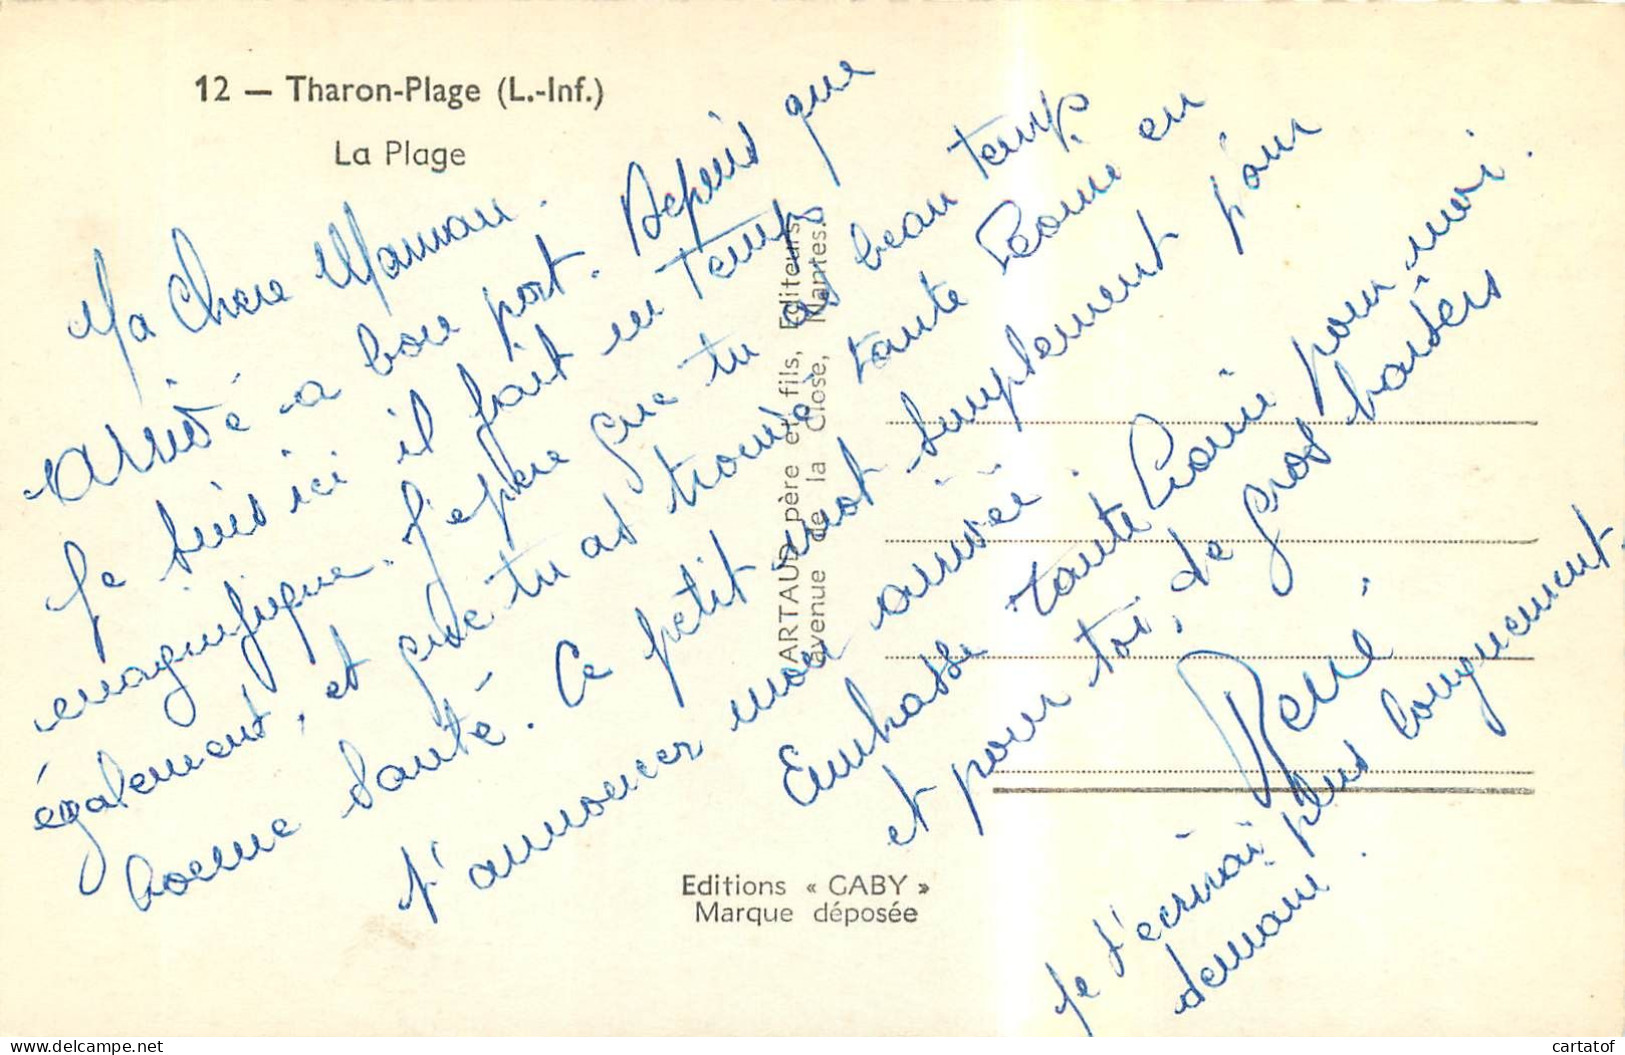 12 — Tharon-Plage (L.-Inf.)
La Plage
Ma Chère Maman.
Arrivé a bon port. Depuis que
je suis ici il fait un temps
magnifique. J'epère que tu as beau temps
également, et que tu as trouvé tante Léonie en
bonne santé. Ce petit mot simplement pour
t'annoncer mon arrivée.
Embrasse tante Léonie pour moi.
et pour toi, de gros baisers
René
Je t'écrirai plus longuement
demain.
ARTAUD père et fils, Editeurs
avenue de la Close, Nantes.
Editions « GABY »
Marque déposée
www.delcampe.net
cartatof